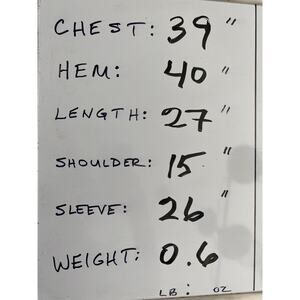 CHEST: 39"
HEM: 40"
LENGTH: 27"
SHOULDER: 15"
SLEEVE: 26"
WEIGHT: 0.6
LB : OZ